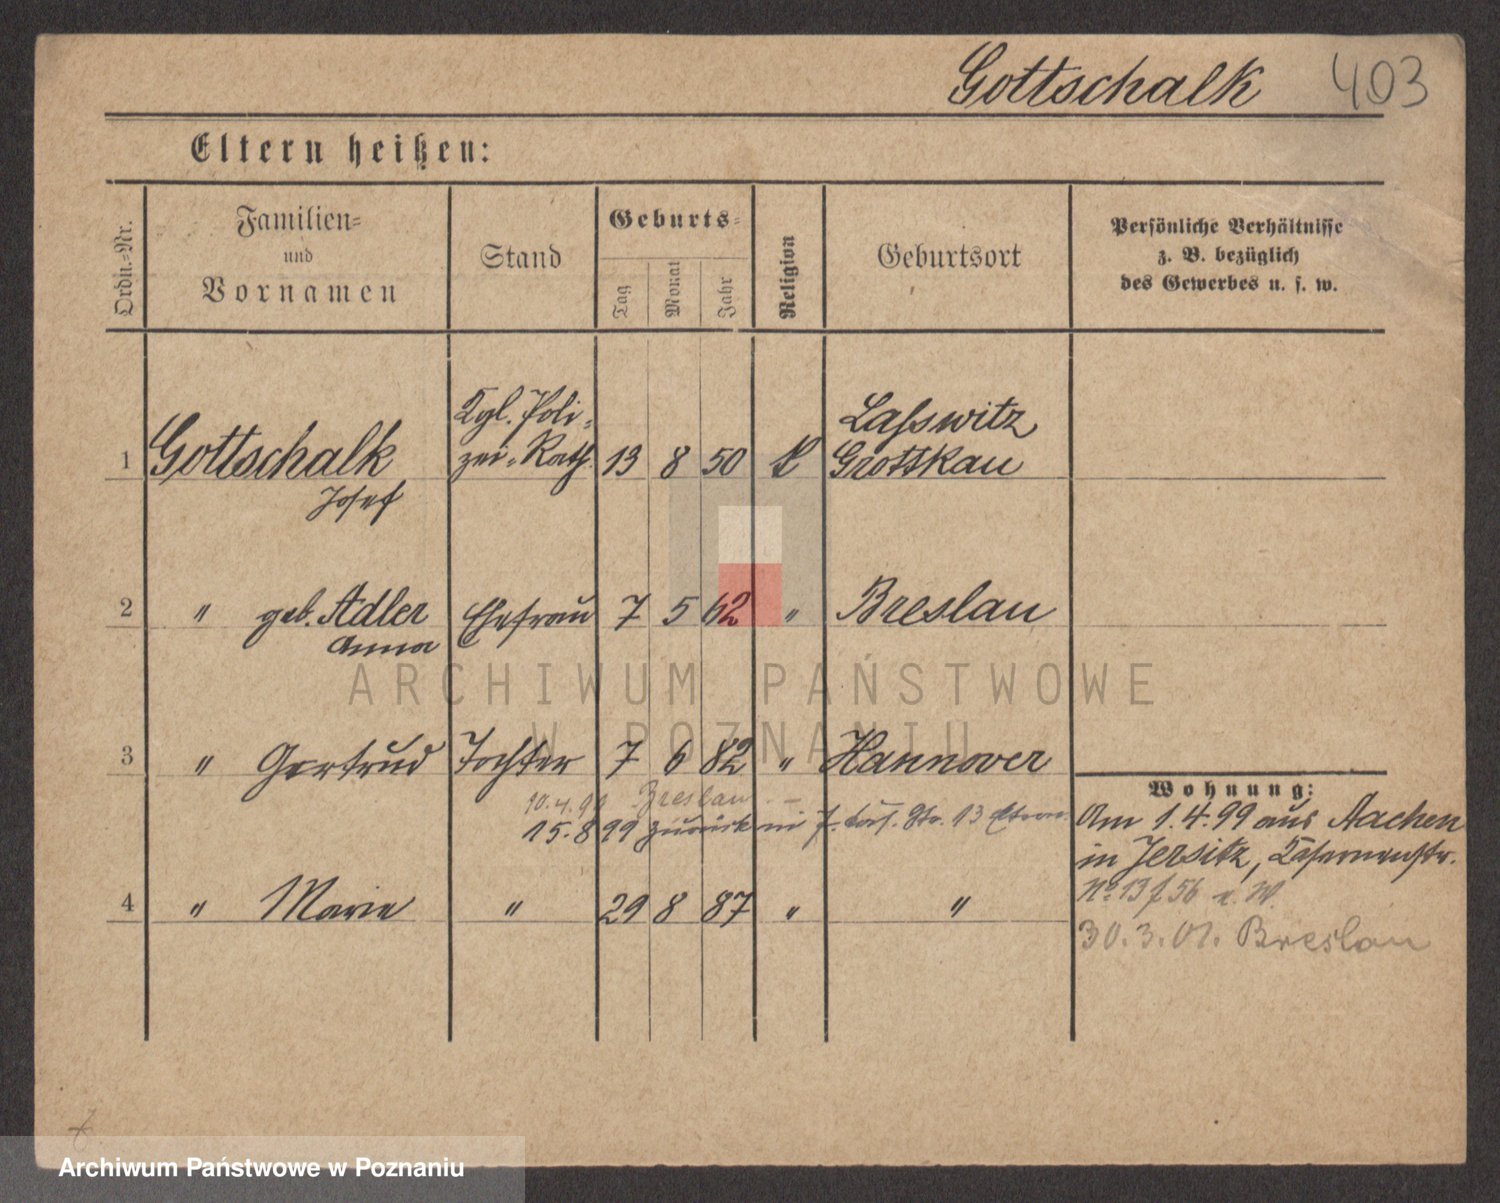 Gottschalk 403
Eltern heißen:
Ordn.-Nr.
Familien-
und
Vornamen
Stand
Geburts-
Tag
Monat
Jahr
Religion
Geburtsort
Persönliche Verhältnisse
z. B. bezüglich
des Gewerbes u. s. w.
Kgl. Poli-
Lasswitz
1 Gottschalk zei-Rath 13 8 50 Grottkau
Josef
2 " geb. Adler Ehefrau 7 5 62 " Breslau
Anna
ARCHIWUM PAŃSTWOWE
W POZNANIU
3 " Gertrud Tochter 7 6 82 " Hannover
Wohnung:
10.4.99 Breslau
15.8 99 zurück
Am 1.4.99 aus Aachen
in Jersitz, Kasernenstr.
No 13
4 " Marie " 29 8 87 " "
30.3.01. Breslau
Archiwum Państwowe w Poznaniu